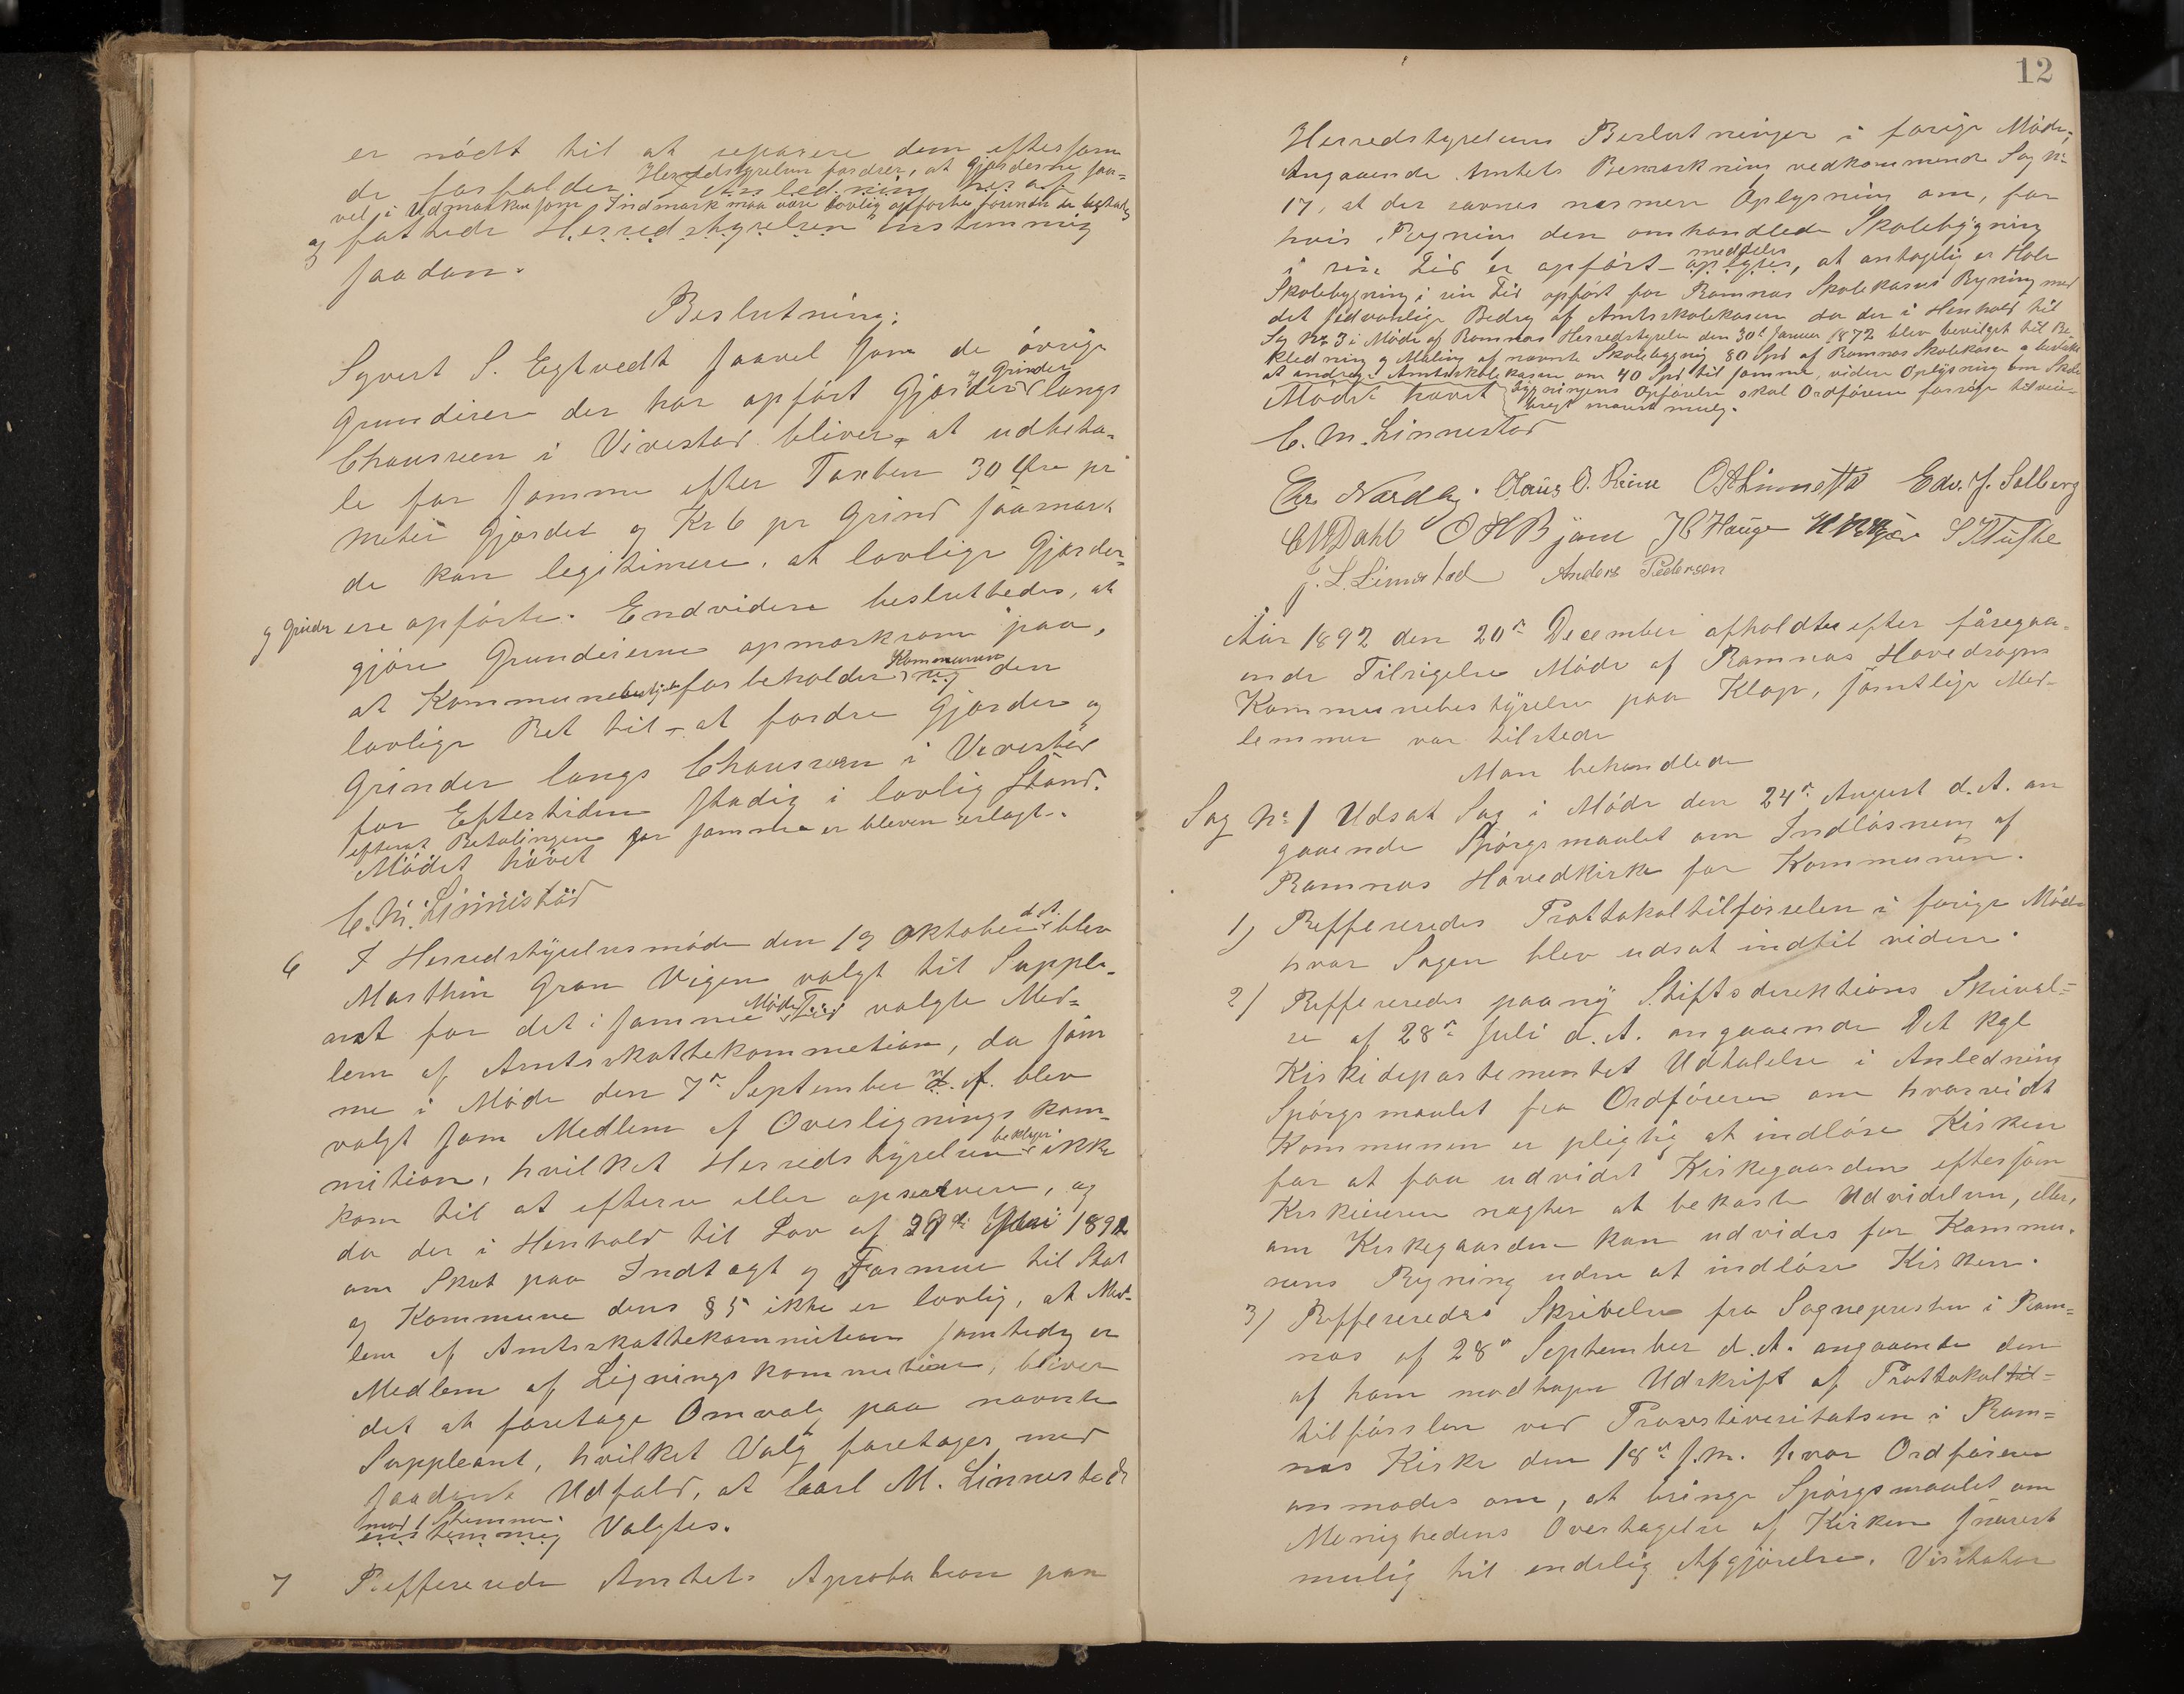 er nödt til at reparere dem eftersom
de forfalder. Herredstyrelsen fordrer, at Gjærderne saa=
I Anledning heraf
vel i Udmarken som Indmark maa være lovlig opförte forinden de betales
og fattede Herredstyrelsen enstemmig
saadan.
Beslutning:
Syvert S. Egtvedt saavel som de övrige
Grundeiere der har opfört Gjærder og Grinder langs
Chauseen i Virestad bliver at udbeta=
le for samme efter Taxten 30 Öre pr
meter Gjærdet og Kr 6 pr Grind saasnart
de kan legitimere, at lovlige Gjærder=
og Grinder ere opförte. Endvidere besluttedes, at
gjöre Grundeierne opmærksom paa,
at Kommunebestyrelsen forbeholder Kommunen sig den
lovlige Ret til at fordre Gjærder og
Grinder langs Chauseen i Virestad
for Eftertiden stadig i lovlig Stand.
efterat Betalingen for samme er bleven erlagt.
Mödet hævet
C. M. Linnestad
6 I Herredstyrelsesmöde den 19 Oktober d. A. blev
Marthin Gran Vigen valgt til Supple=
ant for det i samme Möde Tid valgte Med=
lem af Amtsskattekommetion, da sam
me i Möde den 7de September d. A. blev
valgt som Medlem af Overligningskom=
mition, hvilket Herredstyrelsen beklager ikke
kom til at efterse eller opservere, og
da der i Henhold til Lov af Juni 1892
om Skat paa Indtægt og Formue til Stat
og Kommune dens § 5 ikke er lovlig, at Med=
lem af Amtsskattekommition samtidig er
Medlem af Ligningskommition, bliver
det at foretage Omvalg paa nævnte
Suppleant, hvilket Valg foretages med
saadant Udfald, at Carl M. Linnestad
med Stemmer.
enstemmig Valgtes.
7 Reffererede Amtets Aprobation paa
12
Herredstyrelsens Beslutninger i forige Möde;
Angaaende Amtets Bemærkning vedkommende Sag No
17, at der savnes nærmere Oplysning om, for
hvis Regning den omhandlede Skolebygning
i sin Tid er opfört – meddeles oplyses, at antagelig er Hole
Skolebygning i sin Tid opfört for Ramnæs Skolekasses Regning med
det sedvanlige Bedrag af Amtsskolekassen da der i Henhold til
Sag No 3 i Möde af Ramnæs Herredstyrelse den 30te Januar 1872 blev bevilget til Be
klædning og Maling af nævnte Skolebygning 80 Spd af Ramnæs Skolekasse og besluttet
at andrage Amtsskolekassen om 40 Spd til samme, videre Oplysning om Skole
Mödet hævet bygningens Opförelse skal Ordföreren forsöge tilveie=
bragt snarest mulig.
C. M. Linnestad
Chr Nordby. Claus O. Riise O A Linnestad Edv. J. Solberg
C M Dahl O H Bjane J C Hauge S K Tufte
J. L. Linnestad Anders Pedersen
Aar 1892 den 20de December afholdtes efter foregaa=
ende Tilsigelse Möde af Ramnæs Hovedsogns
Kommunebestyrelse paa Klop, samtlige Med=
lemmer var tilstede
Man behandlede
Sag No 1 Udsat Sag i Möde den 24de August d. A. an
gaaende Spörgsmaalet om Indlösning af
Ramnæs Hovedkirke for Kommunen.
1) Reffereredes Prottokoltilförselen i forige Möde
hvor Sagen blev udsat indtil videre.
2) Reffereredes paany Stiftsdirektions Skrivel=
se af 28de Juli d. A. angaaende Det kgl
Kirkedepartementet Udtalelse i Anledning
Spörgsmaalet fra Ordföreren om hvorvidt
Kommunen er pligtig at indlöse Kirken
for at faa udvidet Kirkegaarden eftersom
Kirkeeieren nægter at bekoste Udvidelsen, eller,
om Kirkegaarden kan udvides for Kommu=
nens Regning uden at indlöse Kirken.
3) Reffereredes Skrivelse fra Sognepresten i Ram=
næs af 28de September d. A. angaaende den
af ham modtagne Udskrift af Prottokoltil=
tilförslen ved Provstevisitatsen i Ram=
næs Kirke den 18de s. m. hvor Ordföreren
anmodes om, at bringe Spörgsmaalet om
Menighedens Overtagelse af Kirken snarest
mulig til endelig Afgjörelse. Visitator